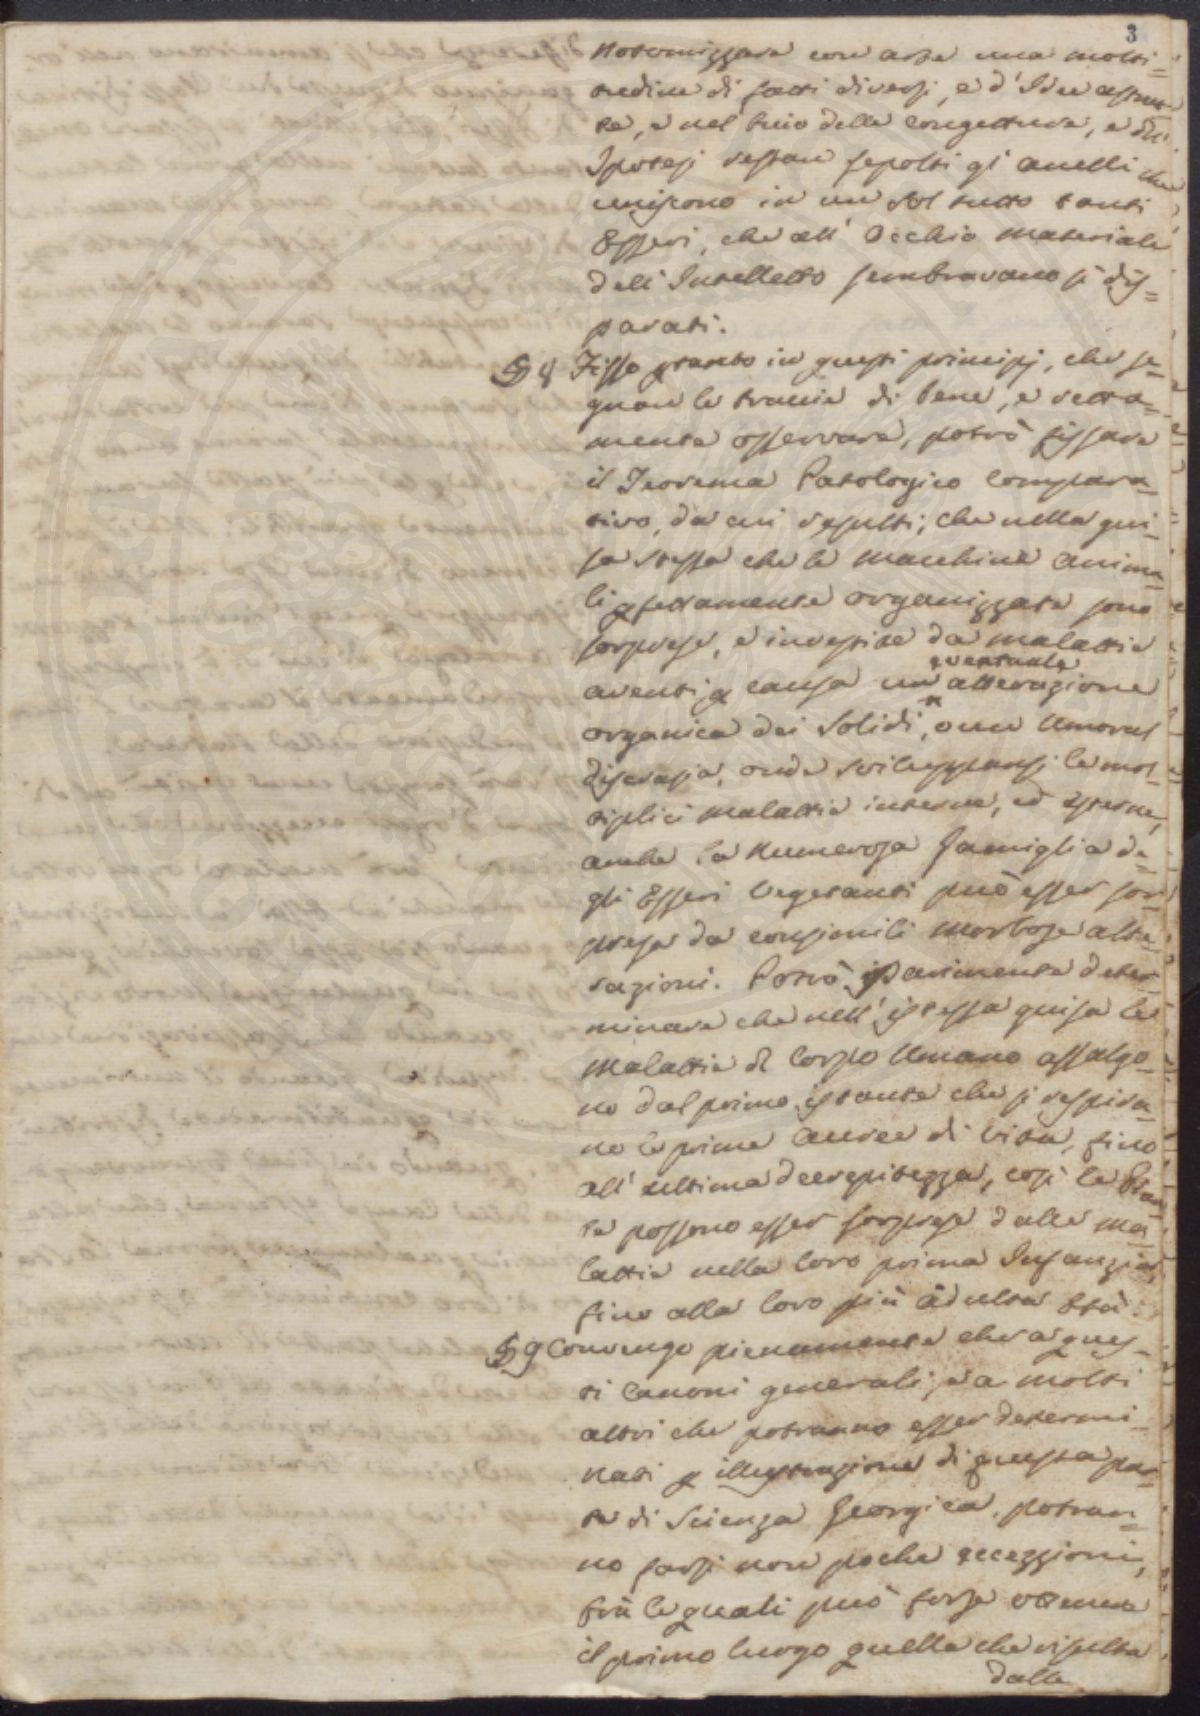 3
Notomizzare con arte una molti=
tudine di fatti diversi, e d'Idee astrat=
te, e nel buio delle congetture, e dll'
Ipotesi restan sepolti gl'anelli che
uniscono in un sol tutto tanti
Esseri, che all'Occhio materiale
dell'Intelletto sembravano sì dis=
parati.
§ 8 Fisso ptanto in questi principj, che se=
guon le traccie di bene, e retta=
mente osservare, potrò fissare
il Teorema Patologico compara=
tivo, da cui resulti; che nella gui=
sa stessa che le macchine anima=
li pfettamente organizzate sono
sorprese, e investite da malattie
eventuale
aventi p causa un'alterazione
organica dei Solidi, o un Umoral
discrasia, onde svilupparsi le mol=
tiplici malattie interne, ed esterne,
anche la numerosa famiglia de=
gli Esseri Vegetanti può esser sor=
presa da consimili morbose alte=
razioni. Potrò parimente deter=
minare che nell'istessa guisa le
malattie dl Corpo Umano assalgo=
no dal primo istante che si respira=
no le prime Aure di vita, fino
all'ultima decrepitezza, così le Pian=
te possono esser sorprese dalle ma=
lattie nella loro prima Infanzia,
fino alla loro più adulta Età.
§ 9 Convengo pienamente che a ques=
ti Canoni generali, e a molti
altri che potranno esser determi=
nati p illustrazione di questa par=
te di Scienza Georgica, potran=
no farsi non poche eccezzioni,
frà le quali può forse ottenere
il primo luogo quella che risulta
dalle